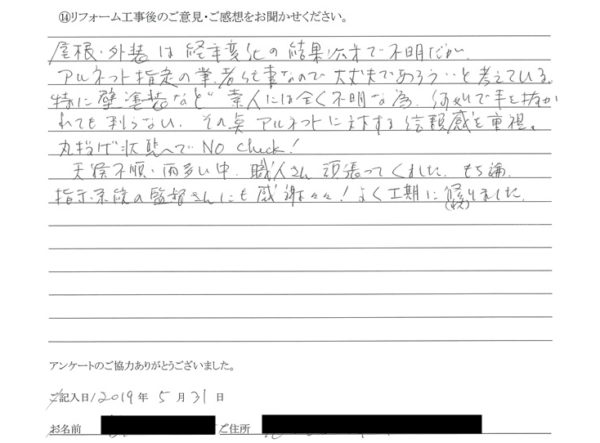 ⑭リフォーム工事後のご意見・ご感想をお聞かせください。
屋根・外装は経年変化の結果次才で不明だが、
アルネット指定の業者仕事なので大丈夫であろう…と考えている。
特に壁塗装など素人には全く不明な為、何処で手を抜か
れても判らない。その点アルネットに対する信頼感を重視。
丸投げ状態でNO check!
天候不順・雨多い中、職人さん頑張ってくれました。もち論、
指示系統の監督さんにも感謝々々!よく工期に終りました。
アンケートのご協力ありがとうございました。
ご記入日/2019年 5月 31日
お名前 ご住所